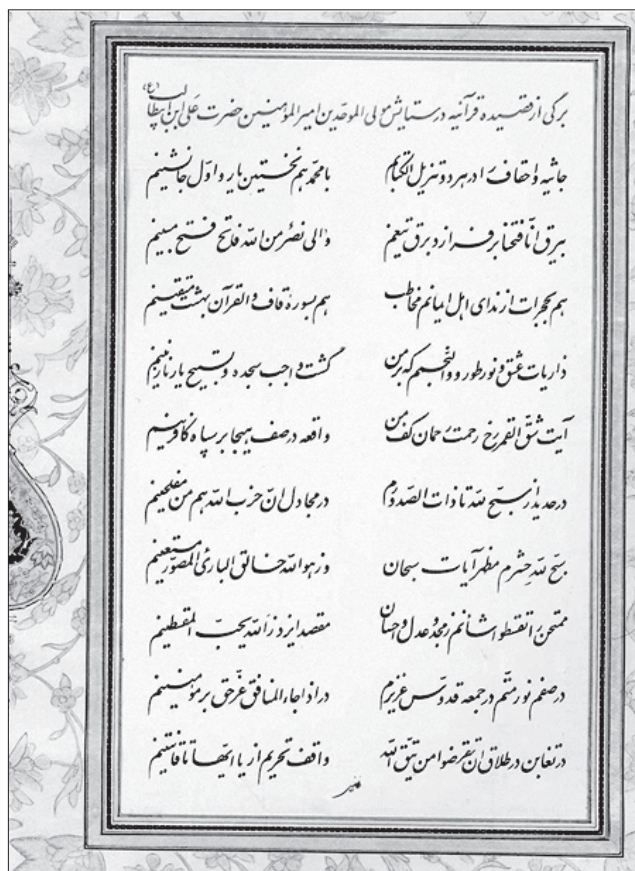 برگی از قصیده قرآنیه در ستایش مولی الموحدین امیرالمؤمنین حضرت علی ابن ابیطالب (ع)
جاثیه و احقاف را در هر دو تنزیل الکتابم با محمد هم نخستین یار و اول جانشینم
بیرق انا فتحنا بر فرازد برق تیغم والی نصر من الله فاتح فتح مبینم
هم بحجرات از ندای اهل ایمانم مخاطب هم بسوره قاف والقرآن بهشت متقینم
ذاریات عشق و نور طور و والنجم که بر من گشت واجب سجده و تسبیح یار نازنینم
آیت شق القمر رخ رحمت رحمان کف من واقعه در صف هیجا بر سپاه کافرینم
در حدید از سبح لله تا ذات الصدورم در مجادل ان حزب الله هم من مفلحینم
سبح لله حشرم مظهر آیات سبحان وز هو الله خالق الباری المصور مستعینم
ممتحن را تقسطوا شأنم ز مجد و عدل و احسان مقصد ایزد ز الله یحب المقسطینم
در صفم نور متم در جمعه قدوس عزیزم در اذا جاء المنافق عز حق بر مؤمنینم
در تغابن در طلاق ان تقرضوا من یتق الله واقف تحریم از یا ایها تا قانتینم